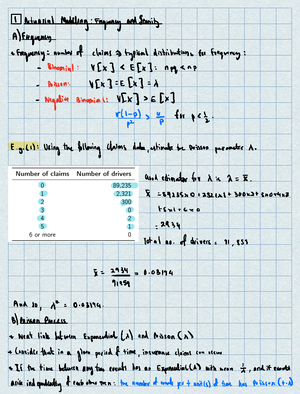 1 Actuarial Modelling: Frequency and Severity
A) Frequency
• Frequency: number of claims → typical distributions for frequency:
- Binomial: V[X] < E[X]: npq < np
- Poisson: V[X] = E[X] = λ
- Negative Binomial: V[X] > E[X]
for p < 1/2.
E.g. (1): Using the following claims data, estimate the Poisson parameter λ.
Number of claims Number of drivers
0 89,235
1 2,321
2 300
3 0
4 2
5 1
6 or more 0
Good estimator for λ is λ̂ = x̄.
x̄ = 89235x0 + 2321x1 + 300x2 + 3x0 + 4x2
+ 5x1 + 6x0
= 2934
Total no. of drivers = 91,859
x̄ = 2934/91859 = 0.03194
And so, λ̂ = 0.03194
B) Poisson Process
• Neat link between Exponential(λ) and Poisson(λ)
• Consider that in a given period of time, insurance claims can occur
• If the time between any two events has an Exponential(λ) with mean 1/λ, and if events
arise independently of each other then: the number of events per t unit(s) of time has Poisson(t·λ)